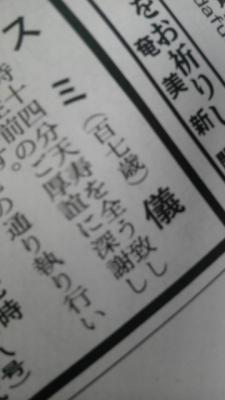 をお祈りし
奄美新
スミ(百七歳)儀
十四分天寿を全う致し
前のご厚誼に深謝し
の通り執り行い
時
号)